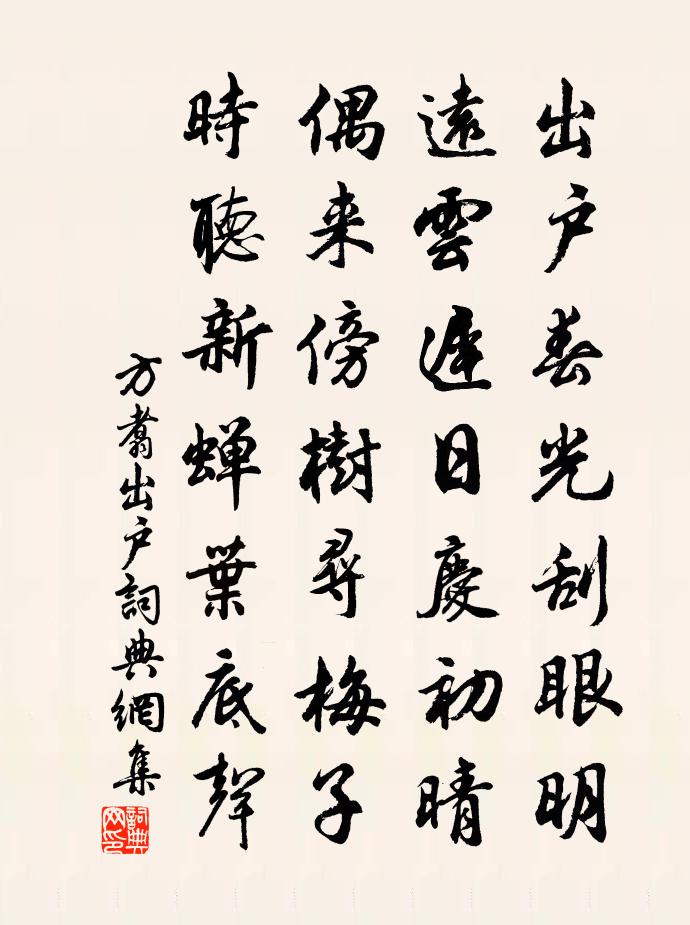 出户春光刮眼明
遠雲遲日慶初晴
偶来傍樹尋梅子
時聽新蟬葉底聲
方翥出户詞典網集
詞典網印